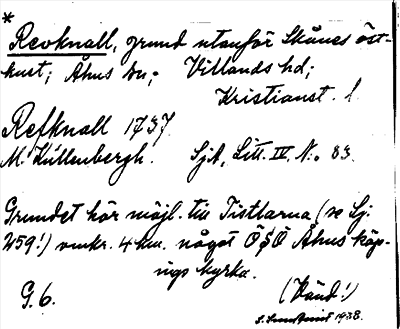 *
Revknall, grund utanför Skånes öst-
kust; Åhus sn; Villands hd;
Kristianst. l.
Refknall 1737.
M. Küllenbergh. Sjk, Litt. IV. N:o 83.
Grundet hör möjl. till Tistlarna (se Sj.
W59!) omkr. 4 km. något ÖSÖ Åhus köp-
ings kyrka.
G. 6. (Vänd!)
1938.